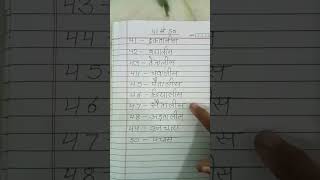 41 से 50
41 - इकतालीस
42 - बयालीस
43 - तैतालीस
44 - चवालीस
45 - पैंतालीस
46 - छियालीस
47 - सैंतालीस
48 - अड़तालीस
49 - उनचास
50 - पचास